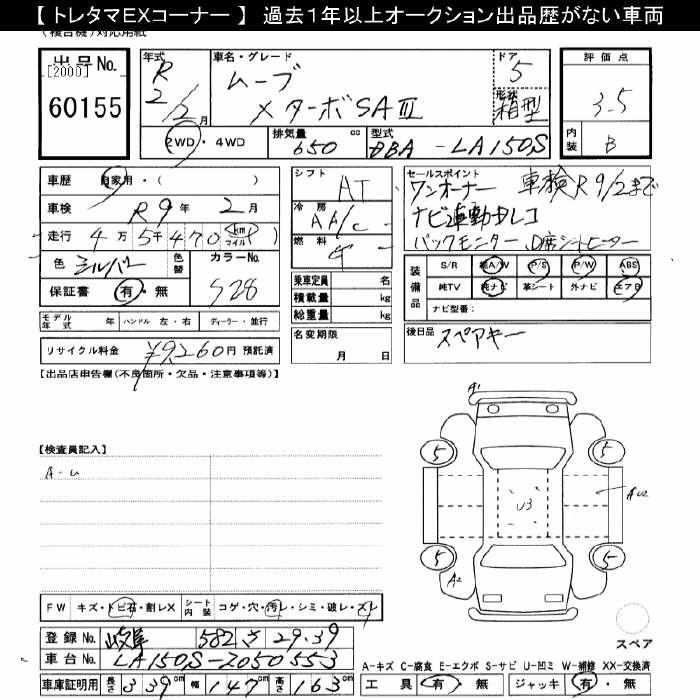 【 トレタマEXコーナー 】 過去1年以上オークション出品歴がない車両
(複合機)対応用紙
出品No.
[2000]
60155
年式
R
2/2月
車名・グレード
ムーブ
X ターボ SAⅢ
ドア
5
形状
箱型
評価点
3.5
内装
B
2WD・4WD
排気量
650 cc
型式
DBA - LA150S
車歴 自家用・( )
車検 R9年 2月
走行 4万 5千 470 (km マイル)
色 シルバー 色替 カラーNo. S28
保証書 有・無
シフト AT
冷房 AA/C
燃料 G
乗車定員 名
積載量 kg
総重量 kg
セールスポイント
ワンオーナー 車検R9/2まで
ナビ連動ドレコ
バックモニター、D席シートヒーター
装備品 S/R 純A/W P/S P/W ABS
純TV 純ナビ 革シート 外ナビ エアB
ナビ型番:
モデル年式 年 ハンドル 左・右 ディーラー・並行
リサイクル料金 ¥9,260円 預託済
名変期限
月 日
後日品 スペアキー
【出品店申告欄(不良箇所・欠品・注意事項等)】
【検査員記入】
A-U
A1
5
5
U3
AU2
5
5
A2
FW キズ・トビ石・割レX シート内装 コゲ・穴・汚レ・シミ・破レ・スレ
スペア
登録No. 岐阜 582 さ 29-39
車台No. LA150S-2050553
A-キズ C-腐食 E-エクボ S-サビ U-凹ミ W-補修 XX-交換済
車庫証明用 長さ 339cm 幅 147cm 高さ 163cm
工具 有・無 ジャッキ 有・無